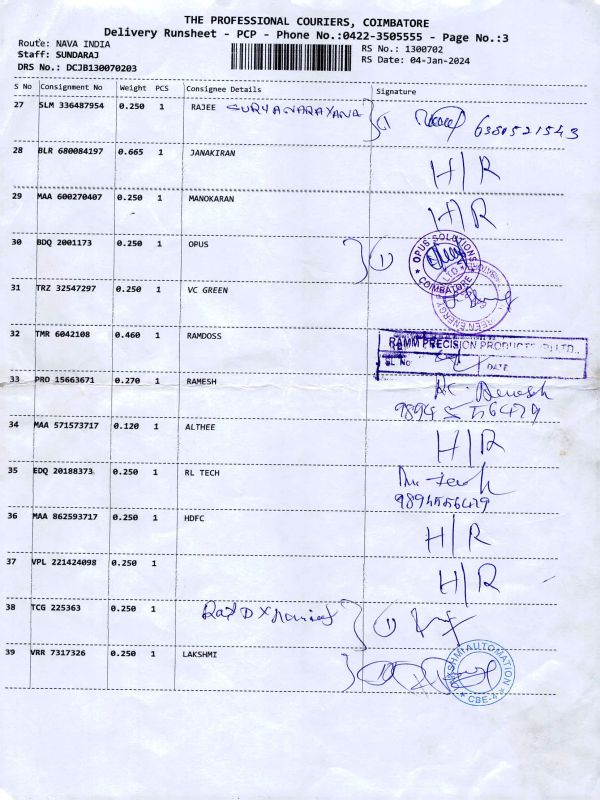 THE PROFESSIONAL COURIERS, COIMBATORE
Delivery Runsheet - PCP - Phone No.:0422-3505555 - Page No.:3
Route: NAVA INDIA
Staff: SUNDARAJ
DRS No.: DCJB130070203
RS No.: 1300702
RS Date: 04-Jan-2024
S No Consignment No Weight PCS Consignee Details Signature
27 SLM 336487954 0.250 1 RAJEE SURYANARAYANA 6380521543
28 BLR 680084197 0.665 1 JANAKIRAN H/R
29 MAA 600270407 0.250 1 MANOKARAN H/R
30 BDQ 2001173 0.250 1 OPUS 1
OPUS SOLUTIONS
LTD
COIMBATORE
31 TRZ 32547297 0.250 1 VC GREEN
GREEN ENERGY
32 TMR 6042108 0.460 1 RAMDOSS
RAMM PRECISION PRODUCTS (P) LTD.,
SL No DATE
33 PRO 15663671 0.270 1 RAMESH
98945 56479
34 MAA 571573717 0.120 1 ALTHEE H/R
35 EDQ 20188373 0.250 1 RL TECH
9894556479
36 MAA 862593717 0.250 1 HDFC H/R
37 VPL 221424098 0.250 1 H/R
38 TCG 225363 0.250 1 1
39 VRR 7317326 0.250 1 LAKSHMI
LAKSHMI AUTOMATION
CBE-4